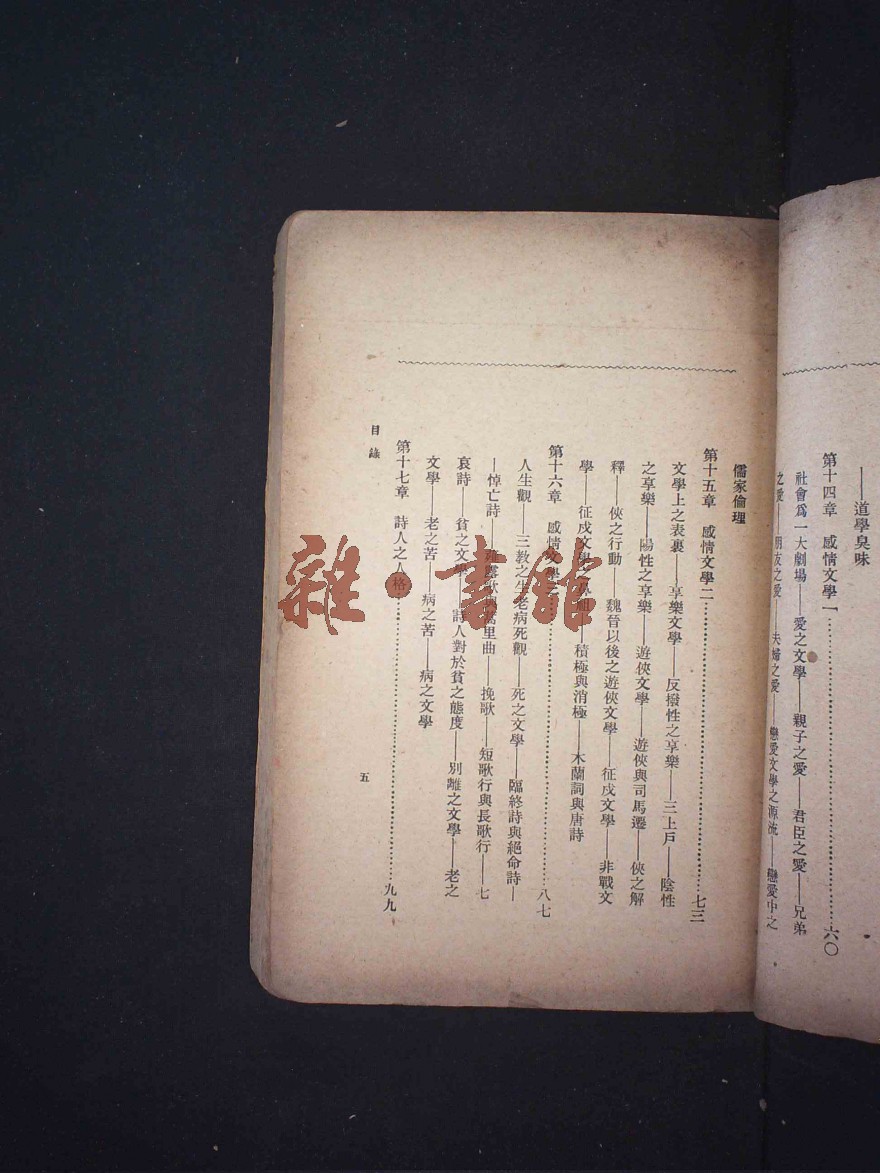 ——道學臭味
第十四章　感情文學一…………六〇
社會爲一大劇場——愛之文學——親子之愛——君臣之愛——兄弟
之愛——朋友之愛——夫婦之愛——戀愛文學之源流——戀愛中之
儒家倫理
第十五章　感情文學二…………七三
文學上之表裏——享樂文學——反撥性之享樂——三上戶——陰性
之享樂——陽性之享樂——遊俠文學——遊俠與司馬遷——俠之解
釋——俠之行動——魏晉以後之遊俠文學——征戍文學——非戰文
學——征戍文學之鼻祖——積極與消極——木蘭詞與唐詩
第十六章　感情文學三…………八七
人生觀——三敎之生老病死觀——死之文學——臨終詩與絕命詩—
—悼亡詩——薤露歌與蒿里曲——挽歌——短歌行與長歌行——七
哀詩——貧之文學——詩人對於貧之態度——別離之文學——老之
文學——老之苦——病之苦——病之文學
第十七章　詩人之人格…………九九
目錄
五
雜·書館